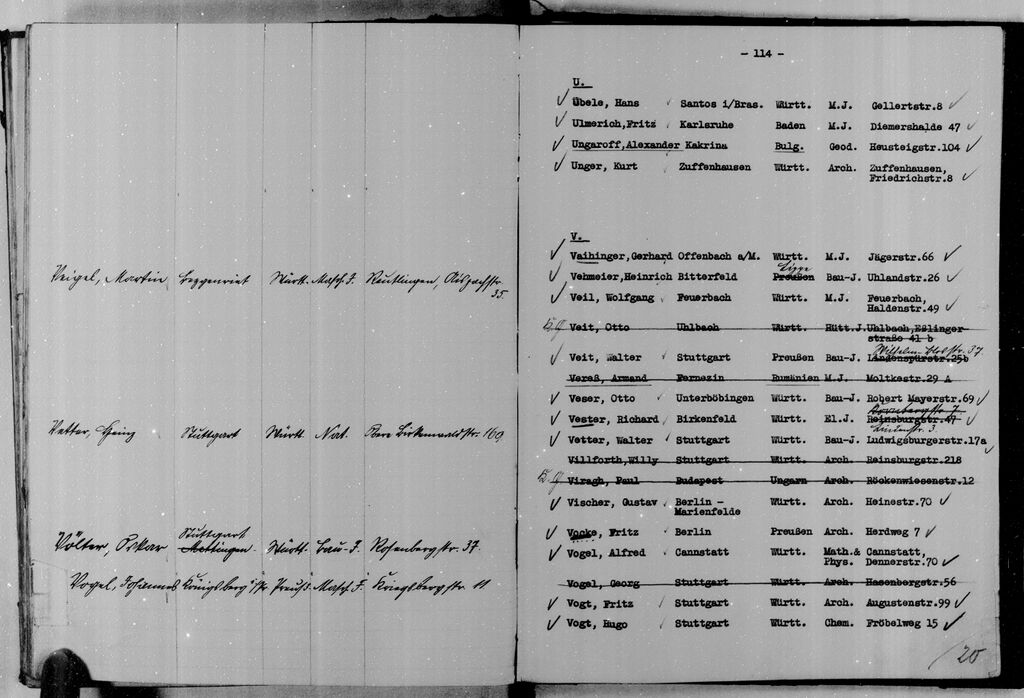 Veigel, Martin Beggenriet Württ. Masch.-I. Reutlingen,
35.
Vetter, Heinz Stuttgart Württ. Nat. Obere Birkenwaldstr. 169
Stuttgart
Völter, Oskar Mettingen. Württ. Bau-I. Rosenbergstr. 37.
Vogel, Johannes Königsberg i/Pr. Preuß. Masch.-I. Kriegsbergstr. 11
- 114 -
U.
Übele, Hans Santos i/Bras. Württ. M.J. Gellertstr.8
Ulmerich,Fritz Karlsruhe Baden M.J. Diemershalde 47
Ungaroff,Alexander Kakrina Bulg. Geod. Heusteigstr.104
Unger, Kurt Zuffenhausen Württ. Arch. Zuffenhausen,
Friedrichstr.8
V.
Vaihinger,Gerhard Offenbach a/M. Württ. M.J. Jägerstr.66
Lippe
Vehmeier,Heinrich Bitterfeld Preußen Bau-J. Uhlandstr.26
Veil, Wolfgang Feuerbach Württ. M.J. Feuerbach,
Haldenstr.49
Veit, Otto Uhlbach Württ. Hütt.J.Uhlbach,Eßlinger-
straße 41 b
Veit, Walter Stuttgart Preußen Bau-J. Lindenspürstr.25b
Vereß, Armand Fernezin Rumänien M.J. Moltkestr.29 A
Veser, Otto Unterböbingen Württ. Bau-J. Robert Mayerstr.69
Vester, Richard Birkenfeld Württ. El.J. Reinsburgstr.47
Lindenstr. 3.
Vetter, Walter Stuttgart Württ. Bau-J. Ludwigsburgerstr.17a
Villforth,Willy Stuttgart Württ. Arch. Reinsburgstr.218
Viragh, Paul Budapest Ungarn Arch. Röckenwiesenstr.12
Vischer, Gustav Berlin - Württ. Arch. Heinestr.70
Marienfelde
Vocke, Fritz Berlin Preußen Arch. Herdweg 7
Vogel, Alfred Cannstatt Württ. Math.& Cannstatt,
Phys. Dennerstr.70
Vogel, Georg Stuttgart Württ. Arch. Hasenbergstr.56
Vogt, Fritz Stuttgart Württ. Arch. Augustenstr.99
Vogt, Hugo Stuttgart Württ. Chem. Fröbelweg 15
20